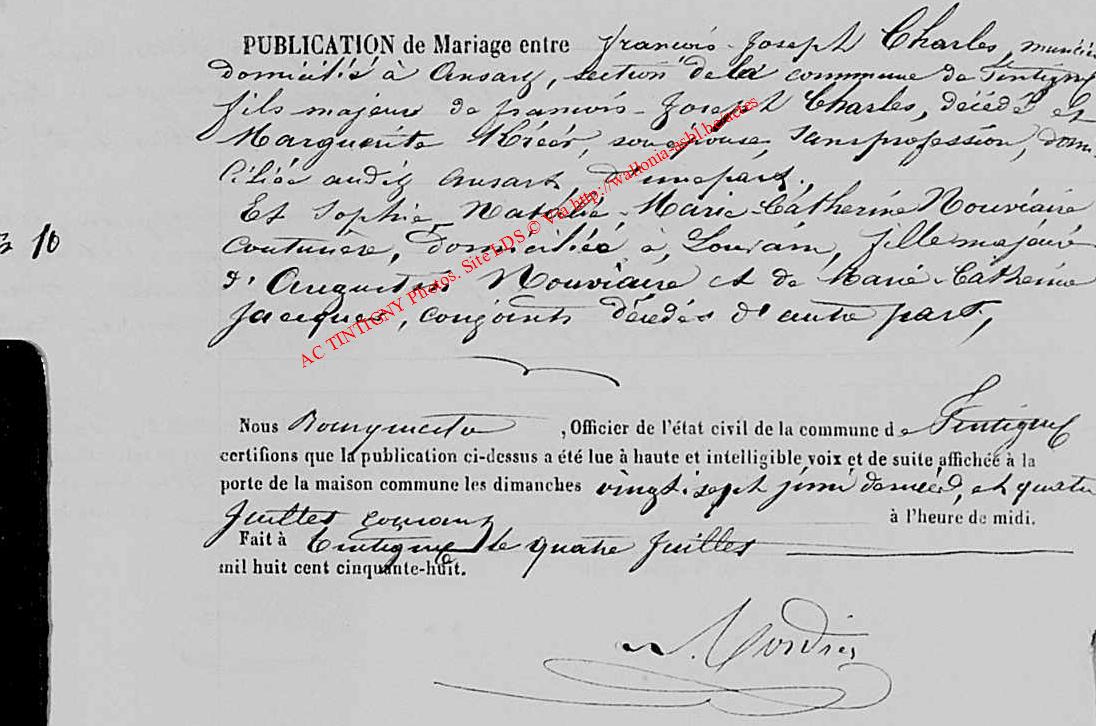 PUBLICATION de Mariage entre françois-Joseph Charles,
domicilié à Ansart, section de la commune de Tintigny
fils majeur de françois-Joseph Charles, décédé et
Marguerite son épouse, sans profession, domi
ciliée audit Ansart, d'une part;
Et Sophie Natalie Marie-Catherine Nouviaire
№ 10
couturière, domiciliée à Louvain, fille majeure
d'Augustin Nouviaire et de Marie-Catherine
Jacques, conjoints décédés d'autre part,
Nous Bourgmestre, Officier de l'état civil de la commune de Tintigny
certifions que la publication ci-dessus a été lue à haute et intelligible voix et de suite affichée à la
porte de la maison commune les dimanches vingt-sept juin dernier, et quatre
juillet courant à l'heure de midi.
Fait à Tintigny le quatre juillet
mil huit cent cinquante-huit.
AC TINTIGNY Photos. Site LDS © Via http://wallonia-asbl.be/actes